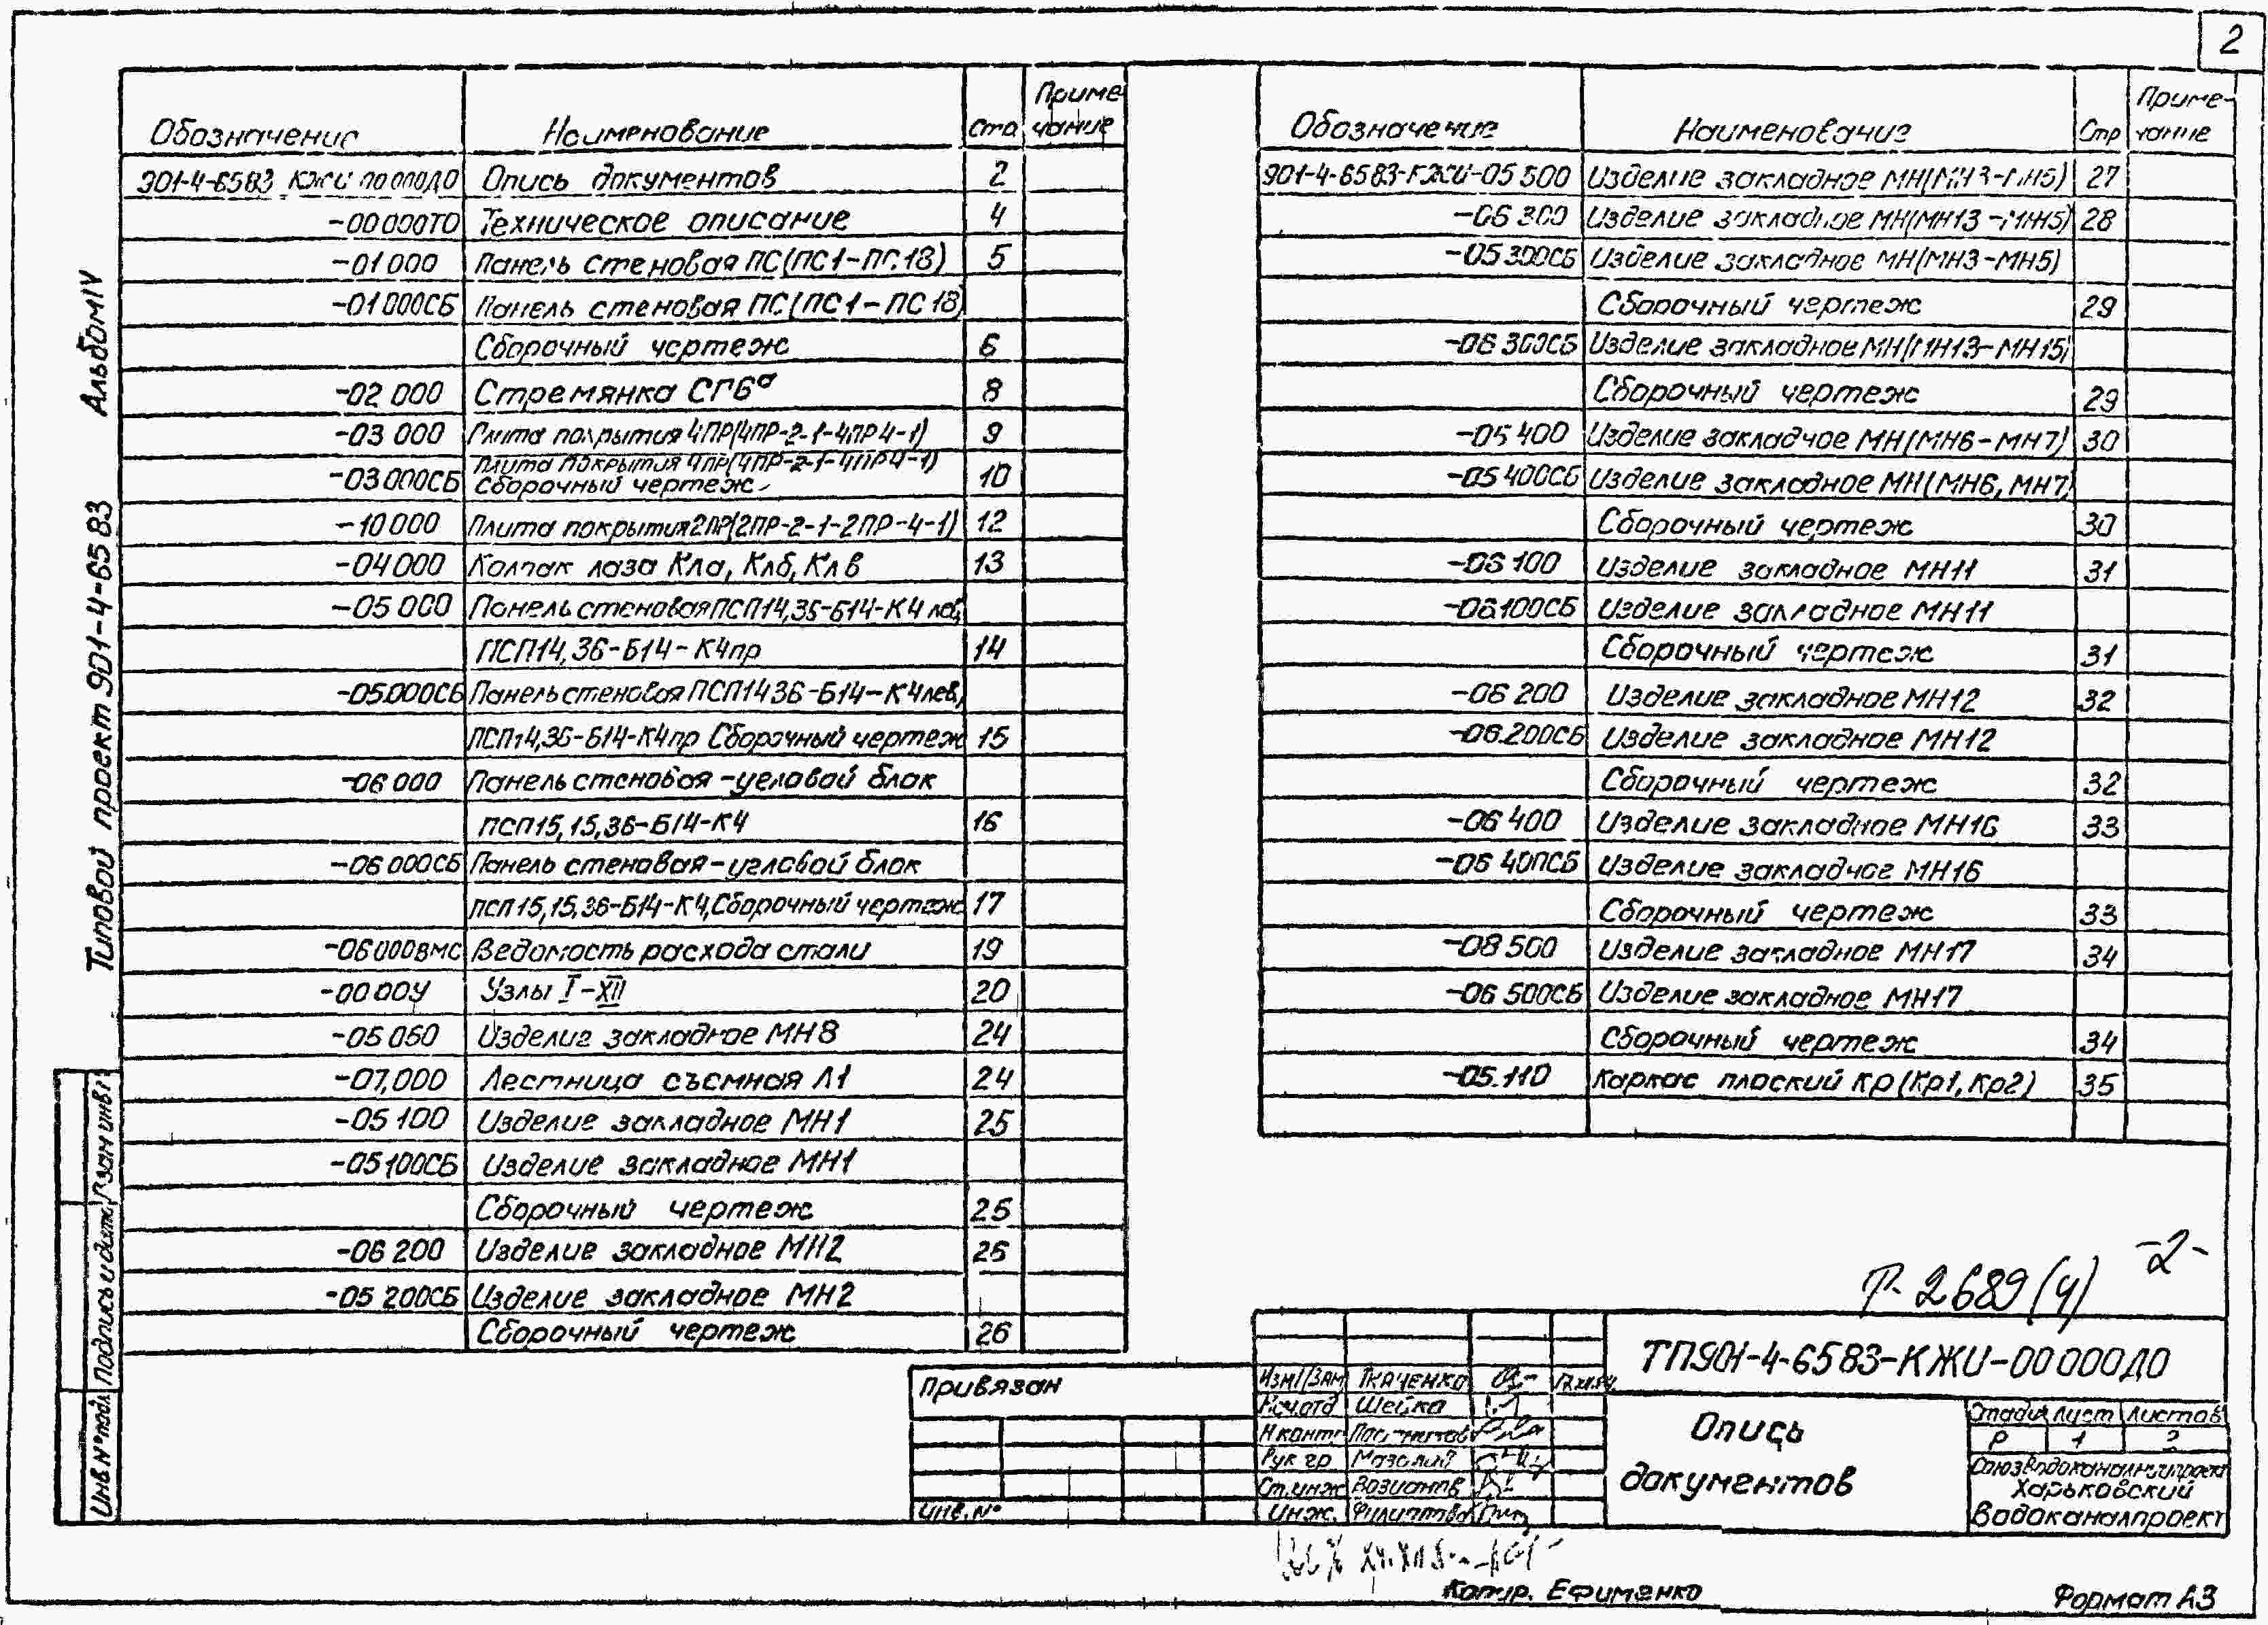 2
Альбом IV
Типовой проект 901-4-65 83
Обозначение Наименование Приме-
чание
901-4-6583 КЖИ 00 000ДО Опись документов 2
-00 000ТО Техническое описание 4
-01 000 Панель стеновая ПС (ПС1-ПС18) 5
-01 000СБ Панель стеновая ПС (ПС1-ПС18)
Сборочный чертеж 6
-02 000 Стремянка СГ6а 8
-03 000 Плита покрытия 4ПР(4ПР-2-1-4ПР4-1) 9
-03 000СБ Плита покрытия 4ПР(4ПР-2-1-4ПР4-1)
Сборочный чертеж 10
-10 000 Плита покрытия 2ПР(2ПР-2-1-2ПР-4-1) 12
-04 000 Колпак лаза Кла, Клб, Клв 13
-05 000 Панель стеновая ПСП14,36-Б14-К4 лев,
ПСП14,36-Б14-К4пр 14
-05.000СБ Панель стеновая ПСП14 36-Б14-К4лев,
ПСП14,36-Б14-К4пр Сборочный чертеж 15
-06 000 Панель стеновая-угловой блок
ПСП15,15,36-Б14-К4 16
-06 000СБ Панель стеновая-угловой блок
ПСП15,15,36-Б14-К4, Сборочный чертеж 17
-06 000ВМС Ведомость расхода стали 19
-00 00У Узлы I-XII 20
-05 060 Изделие закладное МН8 24
-07,000 Лестница съемная Л1 24
-05 100 Изделие закладное МН1 25
-05 100СБ Изделие закладное МН1
Сборочный чертеж 25
-06 200 Изделие закладное МН2 26
-05 200СБ Изделие закладное МН2
Сборочный чертеж 26
Обозначение Наименование Стр Приме-
чание
901-4-6583-КЖИ-05 500 Изделие закладное МН(МН3-МН5) 27
-06 300 Изделие закладное МН(МН13-МН5) 28
-05 300СБ Изделие закладное МН(МН3-МН5)
Сборочный чертеж 29
-06 300СБ Изделие закладное МН(МН13-МН15)
Сборочный чертеж 29
-05 400 Изделие закладное МН(МН6-МН7) 30
-05 400СБ Изделие закладное МН(МН6, МН7)
Сборочный чертеж 30
-06 100 Изделие закладное МН11 31
-06 100СБ Изделие закладное МН11
Сборочный чертеж 31
-06 200 Изделие закладное МН12 32
-06.200СБ Изделие закладное МН12
Сборочный чертеж 32
-06 400 Изделие закладное МН16 33
-06 400СБ Изделие закладное МН16
Сборочный чертеж 33
-08 500 Изделие закладное МН17 34
-06 500СБ Изделие закладное МН17
Сборочный чертеж 34
-05.110 Каркас плоский Кр (Кр1, Кр2) 35
-2-
2689 (4)
Взам инв
Подпись и дата
Инв № подл
Привязан
Инв. №
ТП901-4-6583-КЖИ-00 000ДО
Опись
документов
Стадия Лист Листов
Р 1 2
Союзводоканалниипроект
Харьковский
Водоканалпроект
Ткаченко
Нач.отд Шейка
Н контр
Рук гр
Ст.инж Возианов
Инж. Филиппова
Копир. Ефименко
Формат А3